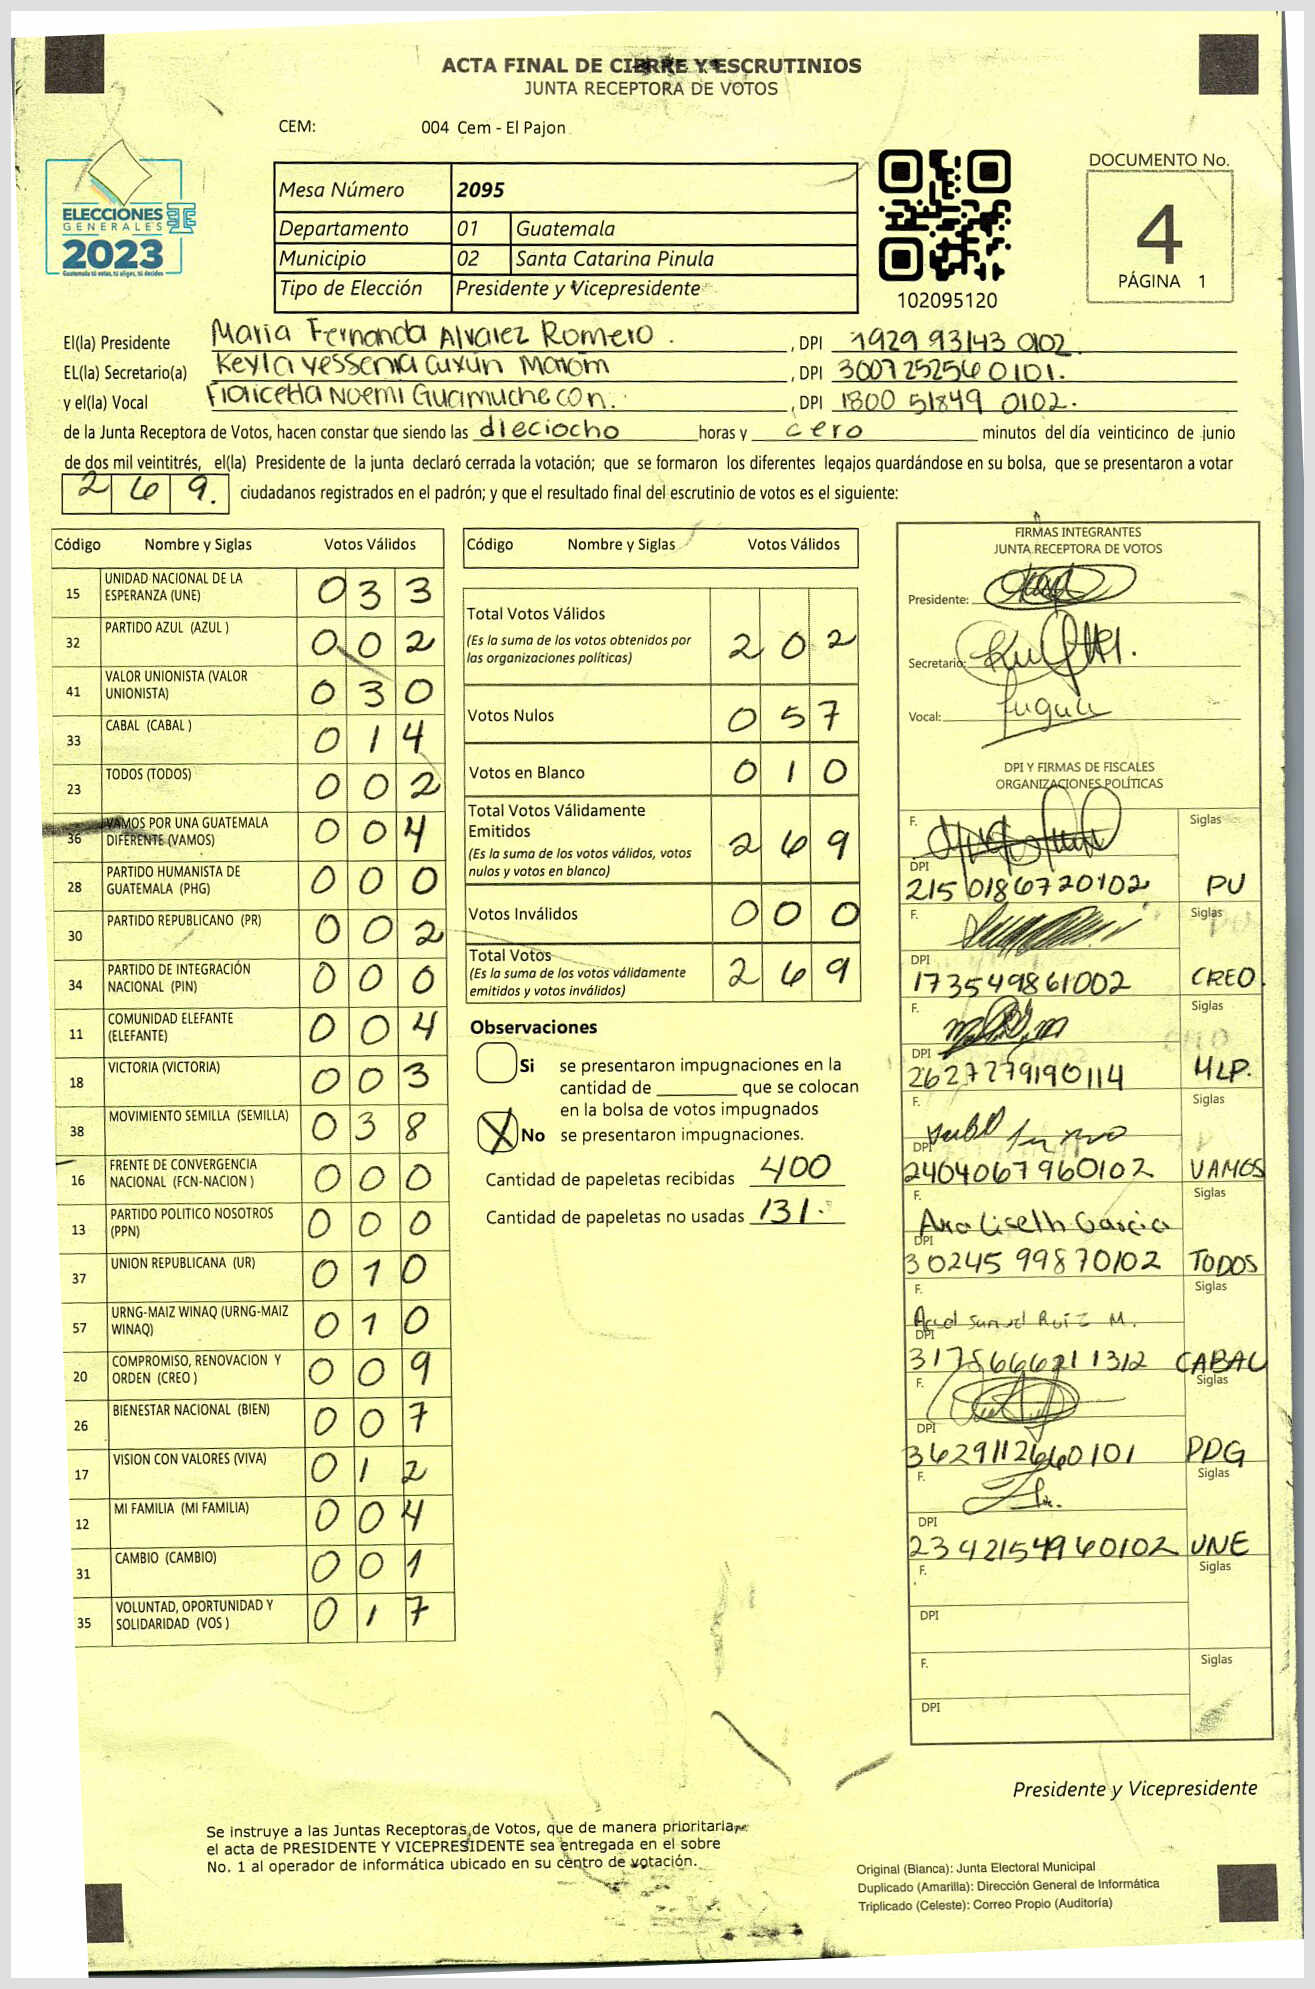 ACTA FINAL DE CIERRE Y ESCRUTINIOS
JUNTA RECEPTORA DE VOTOS
CEM: 004 Cem - El Pajon
ELECCIONES
GENERALES
2023
Guatemala tú votas, tú eliges, tú decides
Mesa Número 2095
Departamento 01 Guatemala
Municipio 02 Santa Catarina Pinula
Tipo de Elección Presidente y Vicepresidente
102095120
DOCUMENTO No.
4
PÁGINA 1
El(la) Presidente Maria Fernanda Alvarez Romero. , DPI 1929 93143 0102
EL(la) Secretario(a) Keyla Yessenia Cuxún Marom , DPI 3007252560101.
y el(la) Vocal Noemi Guamuche con. , DPI 1800 51849 0102.
de la Junta Receptora de Votos, hacen constar que siendo las dieciocho horas y cero minutos del día veinticinco de junio
de dos mil veintitrés, el(la) Presidente de la junta declaró cerrada la votación; que se formaron los diferentes legajos guardándose en su bolsa, que se presentaron a votar
269. ciudadanos registrados en el padrón; y que el resultado final del escrutinio de votos es el siguiente:
Código Nombre y Siglas Votos Válidos
15 UNIDAD NACIONAL DE LA ESPERANZA (UNE) 033
32 PARTIDO AZUL (AZUL ) 002
41 VALOR UNIONISTA (VALOR UNIONISTA) 030
33 CABAL (CABAL ) 014
23 TODOS (TODOS) 002
36 VAMOS POR UNA GUATEMALA DIFERENTE (VAMOS) 004
28 PARTIDO HUMANISTA DE GUATEMALA (PHG) 000
30 PARTIDO REPUBLICANO (PR) 002
34 PARTIDO DE INTEGRACIÓN NACIONAL (PIN) 000
11 COMUNIDAD ELEFANTE (ELEFANTE) 004
18 VICTORIA (VICTORIA) 003
38 MOVIMIENTO SEMILLA (SEMILLA) 038
16 FRENTE DE CONVERGENCIA NACIONAL (FCN-NACION ) 000
13 PARTIDO POLITICO NOSOTROS (PPN) 000
37 UNION REPUBLICANA (UR) 010
57 URNG-MAIZ WINAQ (URNG-MAIZ WINAQ) 010
20 COMPROMISO, RENOVACION Y ORDEN (CREO ) 009
26 BIENESTAR NACIONAL (BIEN) 007
17 VISION CON VALORES (VIVA) 012
12 MI FAMILIA (MI FAMILIA) 004
31 CAMBIO (CAMBIO) 001
35 VOLUNTAD, OPORTUNIDAD Y SOLIDARIDAD (VOS ) 017
Código Nombre y Siglas Votos Válidos
Total Votos Válidos 202
(Es la suma de los votos obtenidos por
las organizaciones políticas)
Votos Nulos 057
Votos en Blanco 010
Total Votos Válidamente
Emitidos 269
(Es la suma de los votos válidos, votos
nulos y votos en blanco)
Votos Inválidos 000
Total Votos 269
(Es la suma de los votos válidamente
emitidos y votos inválidos)
Observaciones
Si se presentaron impugnaciones en la
cantidad de ________ que se colocan
en la bolsa de votos impugnados
No se presentaron impugnaciones.
Cantidad de papeletas recibidas 400
Cantidad de papeletas no usadas 131.
FIRMAS INTEGRANTES
JUNTA RECEPTORA DE VOTOS
Presidente:
Secretario:
Vocal:
DPI Y FIRMAS DE FISCALES
ORGANIZACIONES POLÍTICAS
F. Siglas
DPI
2150186720102 PU
F. Siglas
DPI
173549861002 CREO.
F. Siglas
DPI
2627279190114 MLP.
F. Siglas
DPI
2404067960102 VAMOS
F. Siglas
Ana Liseth Garcia
DPI
30245 99870102 TODOS
F. Siglas
Samuel Ruiz M.
DPI
3178666211312 CABAL
F. Siglas
DPI
3629112660101 PDG
F. Siglas
DPI
2342154960102 UNE
F. Siglas
DPI
F. Siglas
DPI
Presidente y Vicepresidente
Se instruye a las Juntas Receptoras de Votos, que de manera prioritaria,
el acta de PRESIDENTE Y VICEPRESIDENTE sea entregada en el sobre
No. 1 al operador de informática ubicado en su centro de votación.
Original (Blanca): Junta Electoral Municipal
Duplicado (Amarilla): Dirección General de Informática
Triplicado (Celeste): Correo Propio (Auditoría)